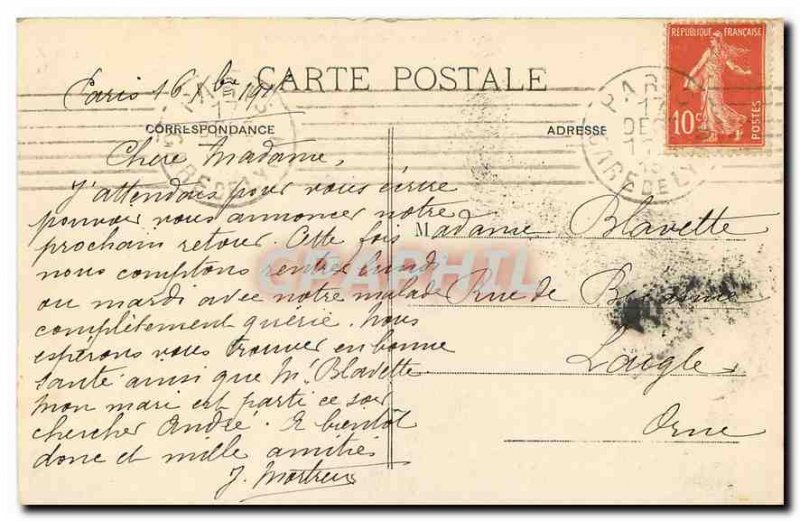 CARTE POSTALE
RÉPUBLIQUE FRANÇAISE
10c
POSTES
PARIS
17
DEC
Paris 16 Xbre
CORRESPONDANCE
ADRESSE
Chere Madame,
J'attendais pour vous écrire
pouvoir vous annoncer notre
prochain retour. Cette fois
nous comptons rentrer lundi
ou mardi avec notre malade
complètement guérie. Nous
espérons vous trouver en bonne
santé ainsi que Mr Blavette
mon mari est parti ce soir
chercher André. A bientôt
donc et mille amitiés
J.
Madame Blavette
Rue de
Laigle
Orne
CPAPHIL